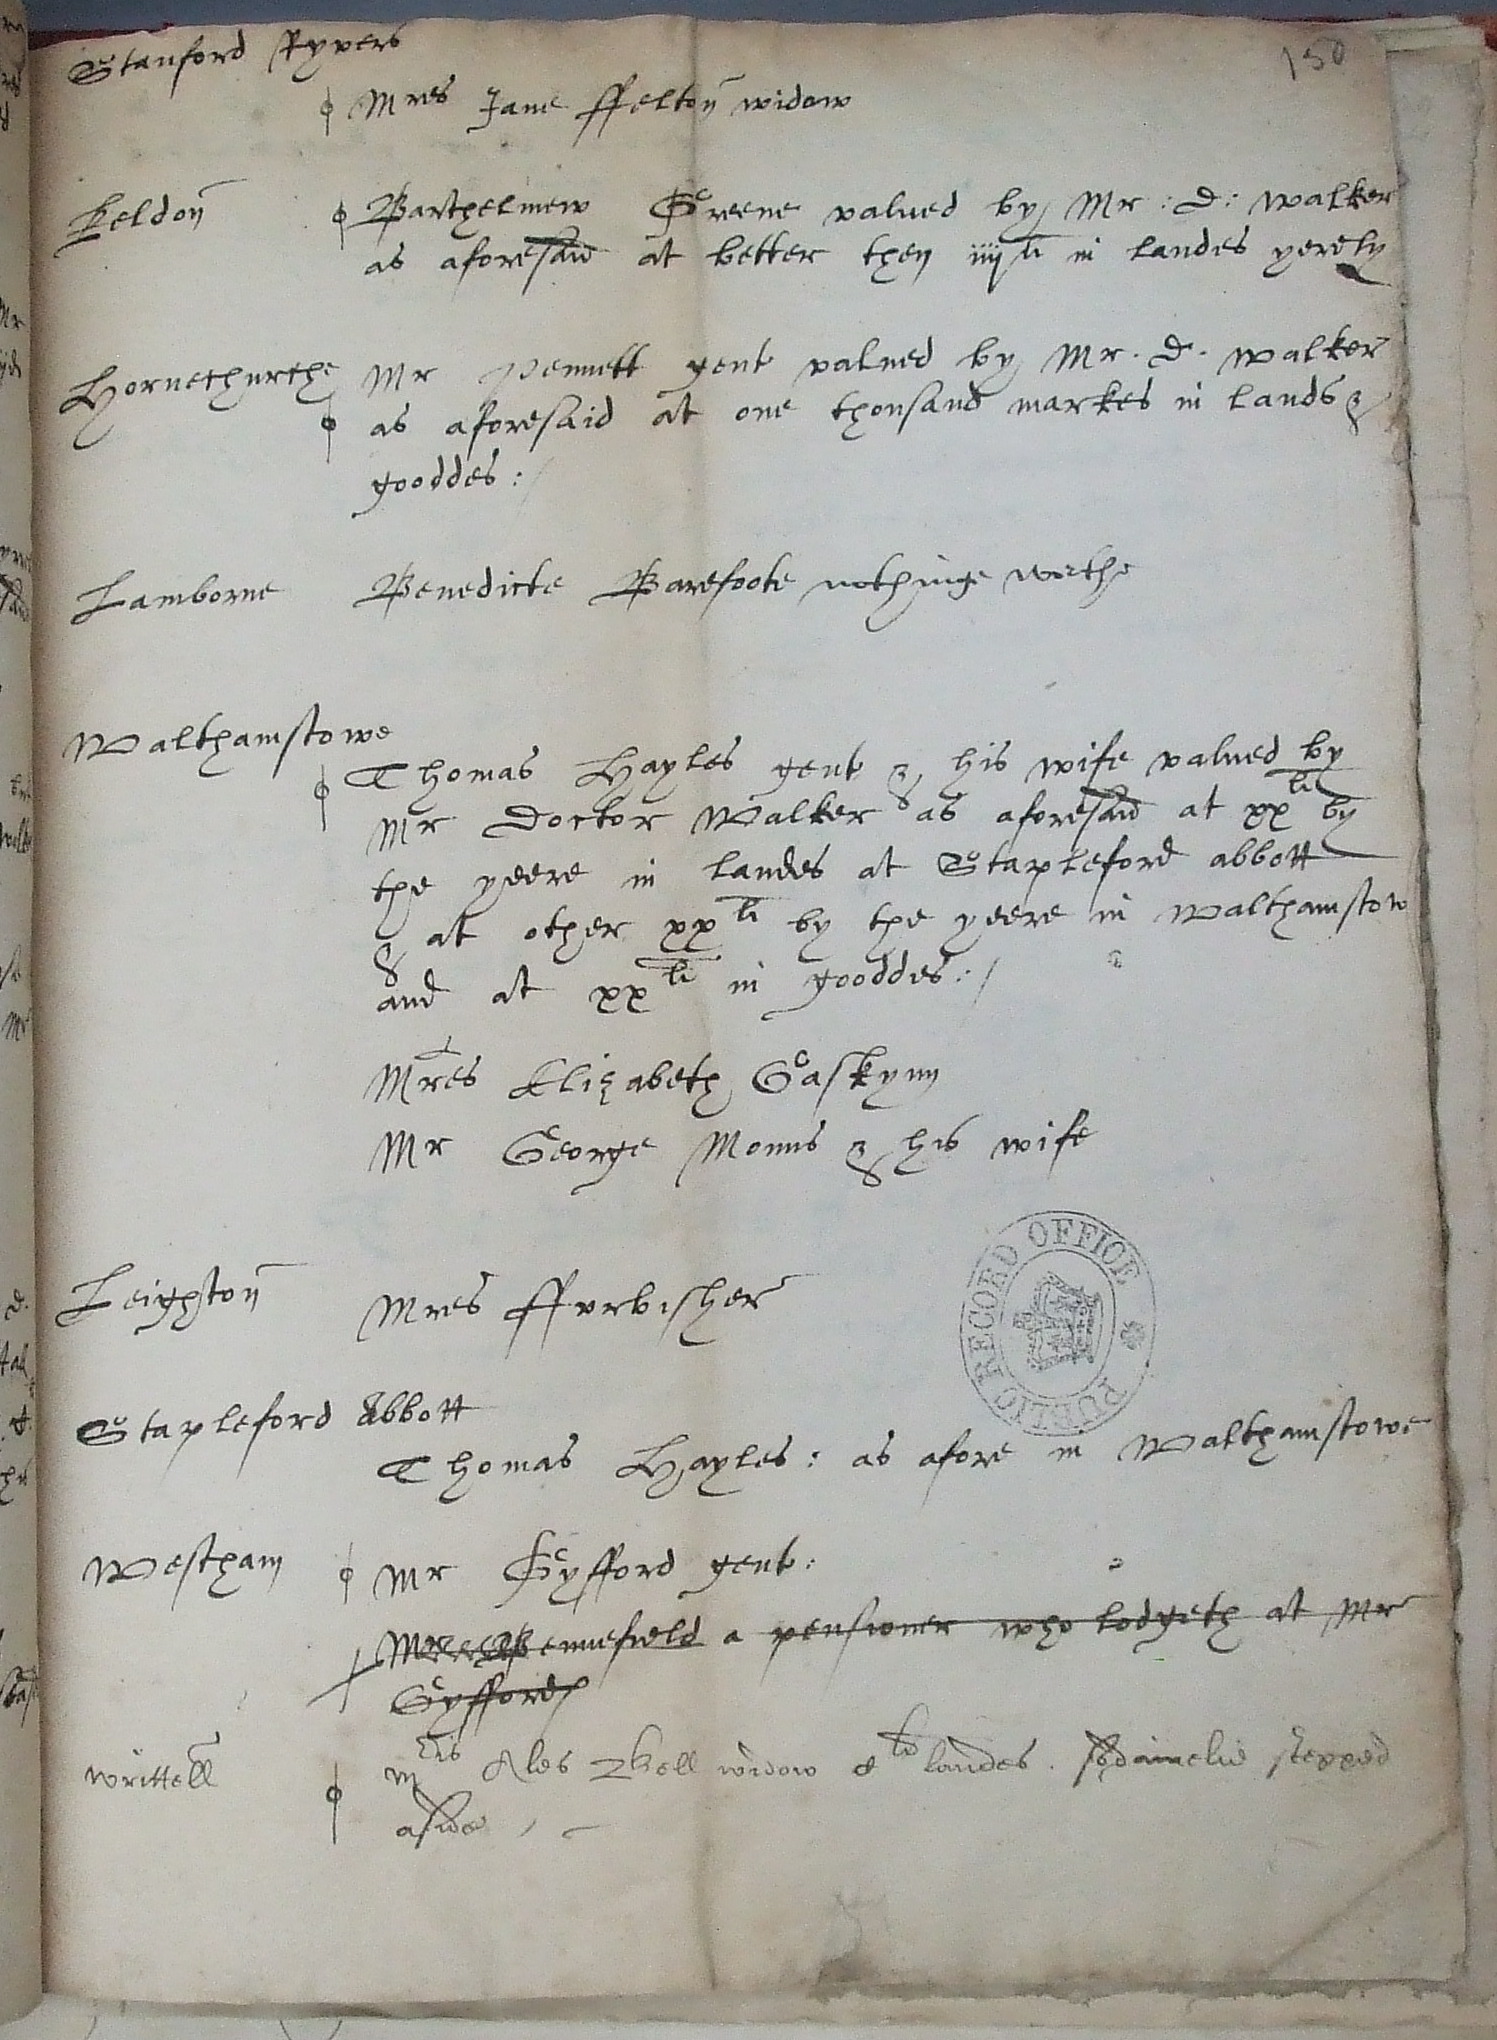 150
Stanford Ryvers
Mres Jane ffelton widow
Keldon Barthelmew Greene valued by Mr : D : Walker
as aforesaid at better then iiij li in landes yerely
Hornechurche Mr Pennett gent valued by Mr . D . Walker
as aforesaid at one thousand markes in lands &
gooddes : /
Lamborne Benedicte Barefoote nothinge worthe
Walthamstowe
Thomas Hayles gent & his wife valued by
Mr Doctor Walker as aforesaid at xx li by
the yeere in landes at Stapleford abbott
& at other xx li by the yeere in Walthamstow
and at xx li in gooddes : /
Mres Elizabeth Gaskyn
Mr George Monns & his wife
Leighton Mres ffurbisher
Stapleford Abbott
Thomas Hayles : as afore in Walthamstowe
Westham Mr Gyfford gent :
Bennefield a pensioner who lodgeth at Mr
Gyffords
Writtell mris Ales widow landes . stepped
aside
PUBLIC RECORD OFFICE